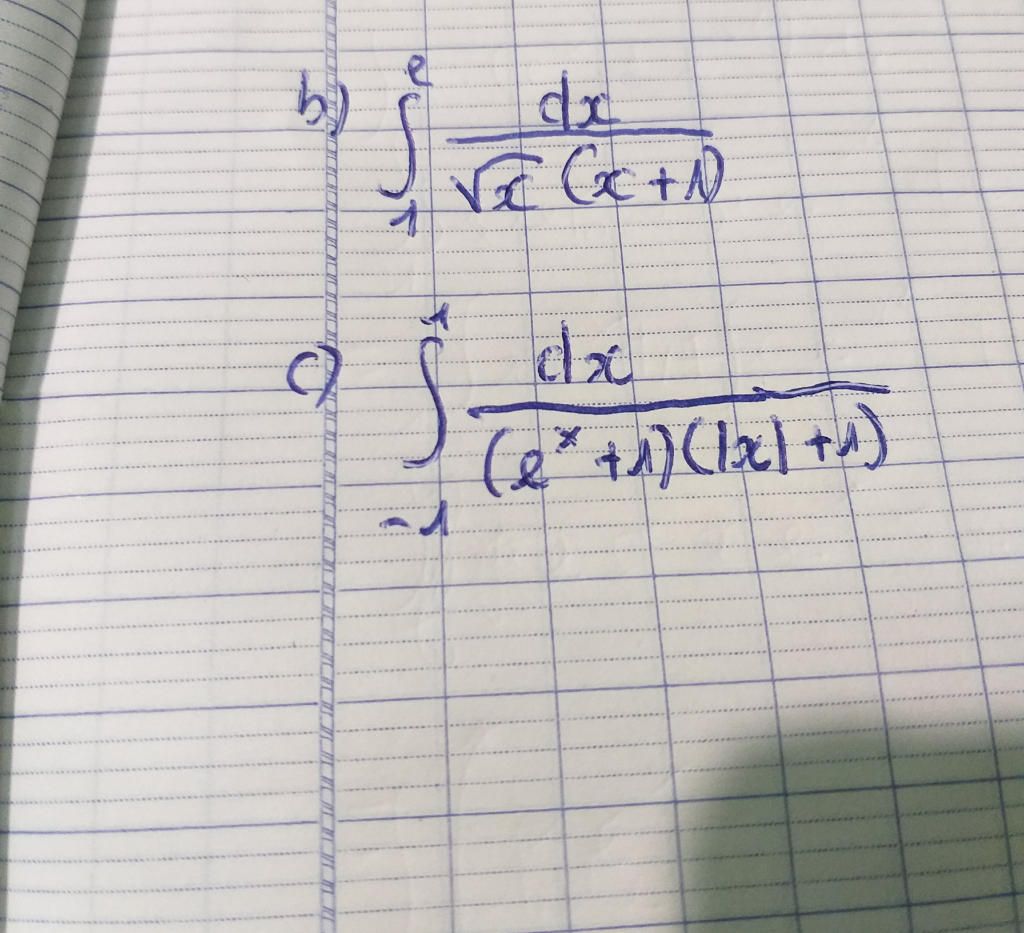 b) ∫₁ᵉ dx / (√x (x+1))
c) ∫₋₁¹ dx / ((eˣ+1)(|x|+1))